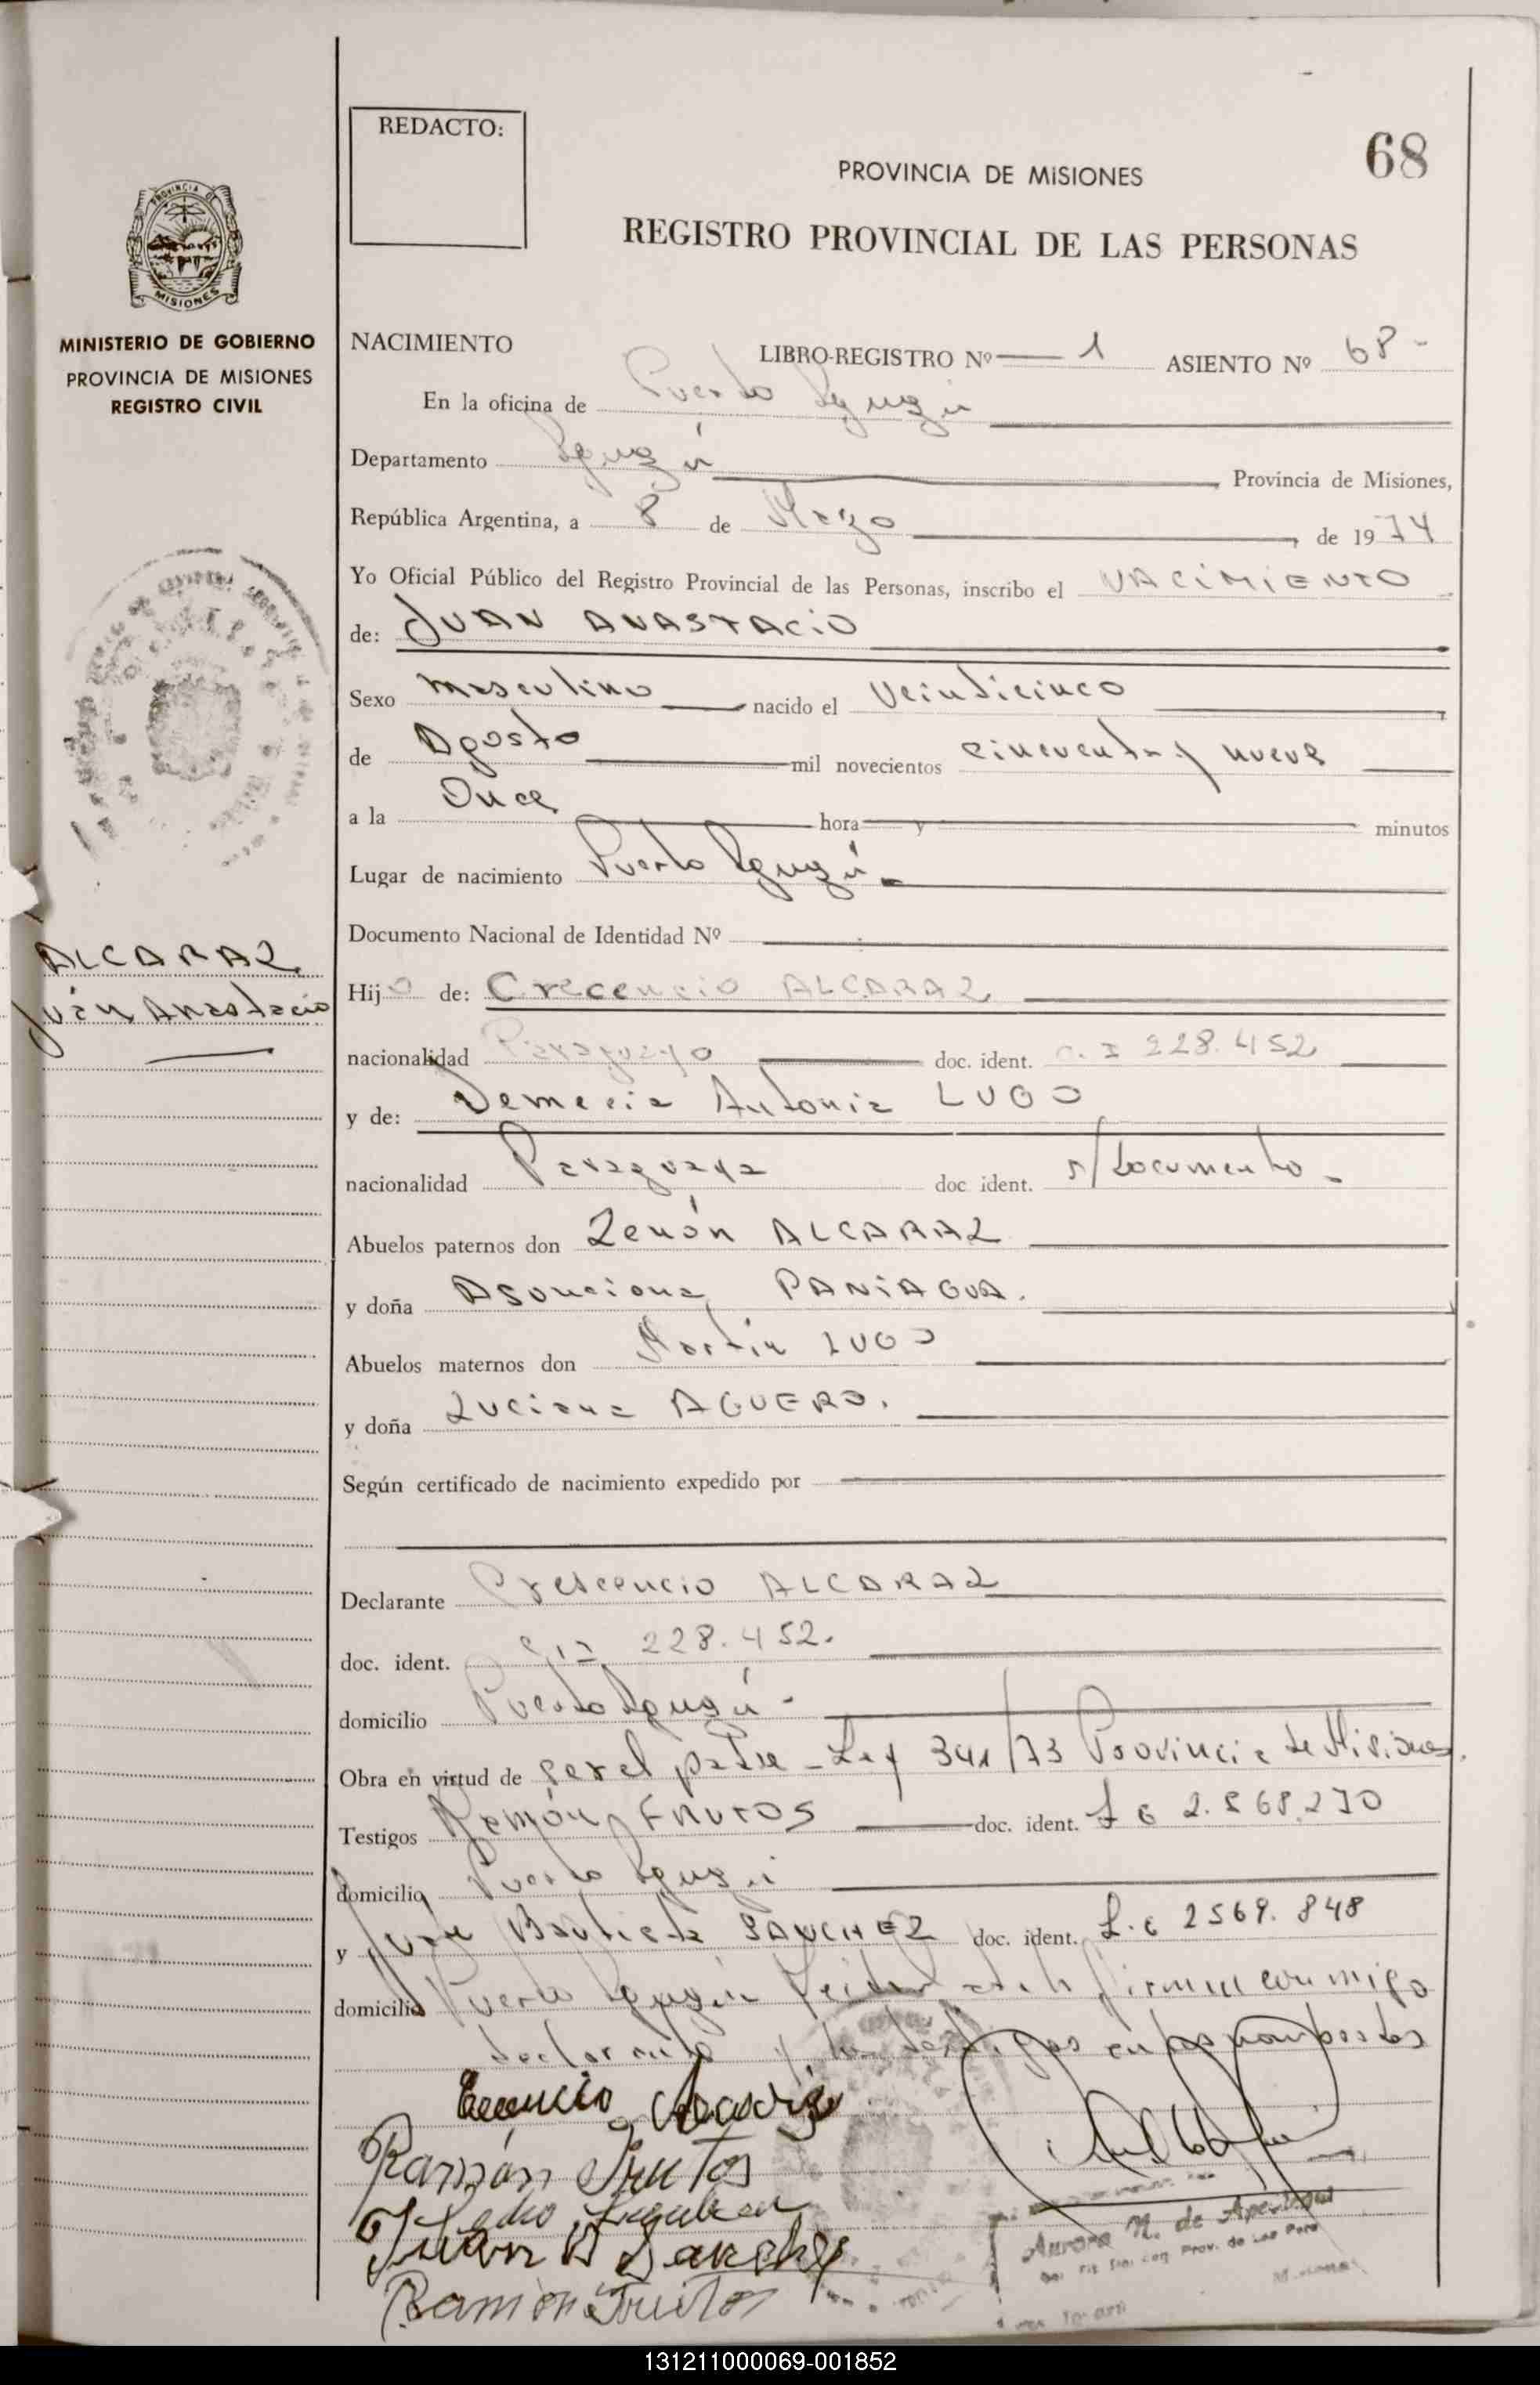 REDACTO:
68
PROVINCIA DE MISIONES
REGISTRO PROVINCIAL DE LAS PERSONAS
PROVINCIA DE
MISIONES
MINISTERIO DE GOBIERNO
PROVINCIA DE MISIONES
REGISTRO CIVIL
NACIMIENTO LIBRO-REGISTRO Nº 1 ASIENTO Nº 68-
En la oficina de Puerto Iguazú
Departamento Iguazú Provincia de Misiones,
República Argentina, a 8 de Marzo de 1974
Yo Oficial Público del Registro Provincial de las Personas, inscribo el NACIMIENTO
de: JUAN ANASTACIO
Sexo masculino nacido el veinticinco
de Agosto mil novecientos cincuenta y nueve
a la Once hora y minutos
Lugar de nacimiento Puerto Iguazú -
Documento Nacional de Identidad Nº
ALCARAZ
Juan Anastacio
Hijo de: Crecencio ALCARAZ
nacionalidad Paraguayo doc. ident. C. I 228.452
y de: Demecia Antonia LUGO
nacionalidad Paraguaya doc ident. s/Documento -
Abuelos paternos don Zenón ALCARAZ
y doña Asunciona PANIAGUA.
Abuelos maternos don Martin LUGO
y doña Luciana AGUERO.
Según certificado de nacimiento expedido por
Declarante Crescencio ALCARAZ
doc. ident. C.I 228.452.
domicilio Puerto Iguazú -
Obra en virtud de ser el padre - Ley 341/73 Provincia de Misiones.
Testigos Ramón FRUTOS doc. ident. L C 2.568.270
domicilio Puerto Iguazú
y Juan Bautista SANCHEZ doc. ident. L.C 2569.848
domicilio Puerto Iguazú Leida acta firman conmigo
declarante y los testigos
Ramón Frutos
Juan B Sanchez
Ramon Frutos
Aurora M. de
131211000069-001852